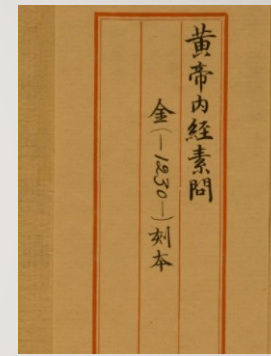 黄帝内經素問
金(—1230—)刻本